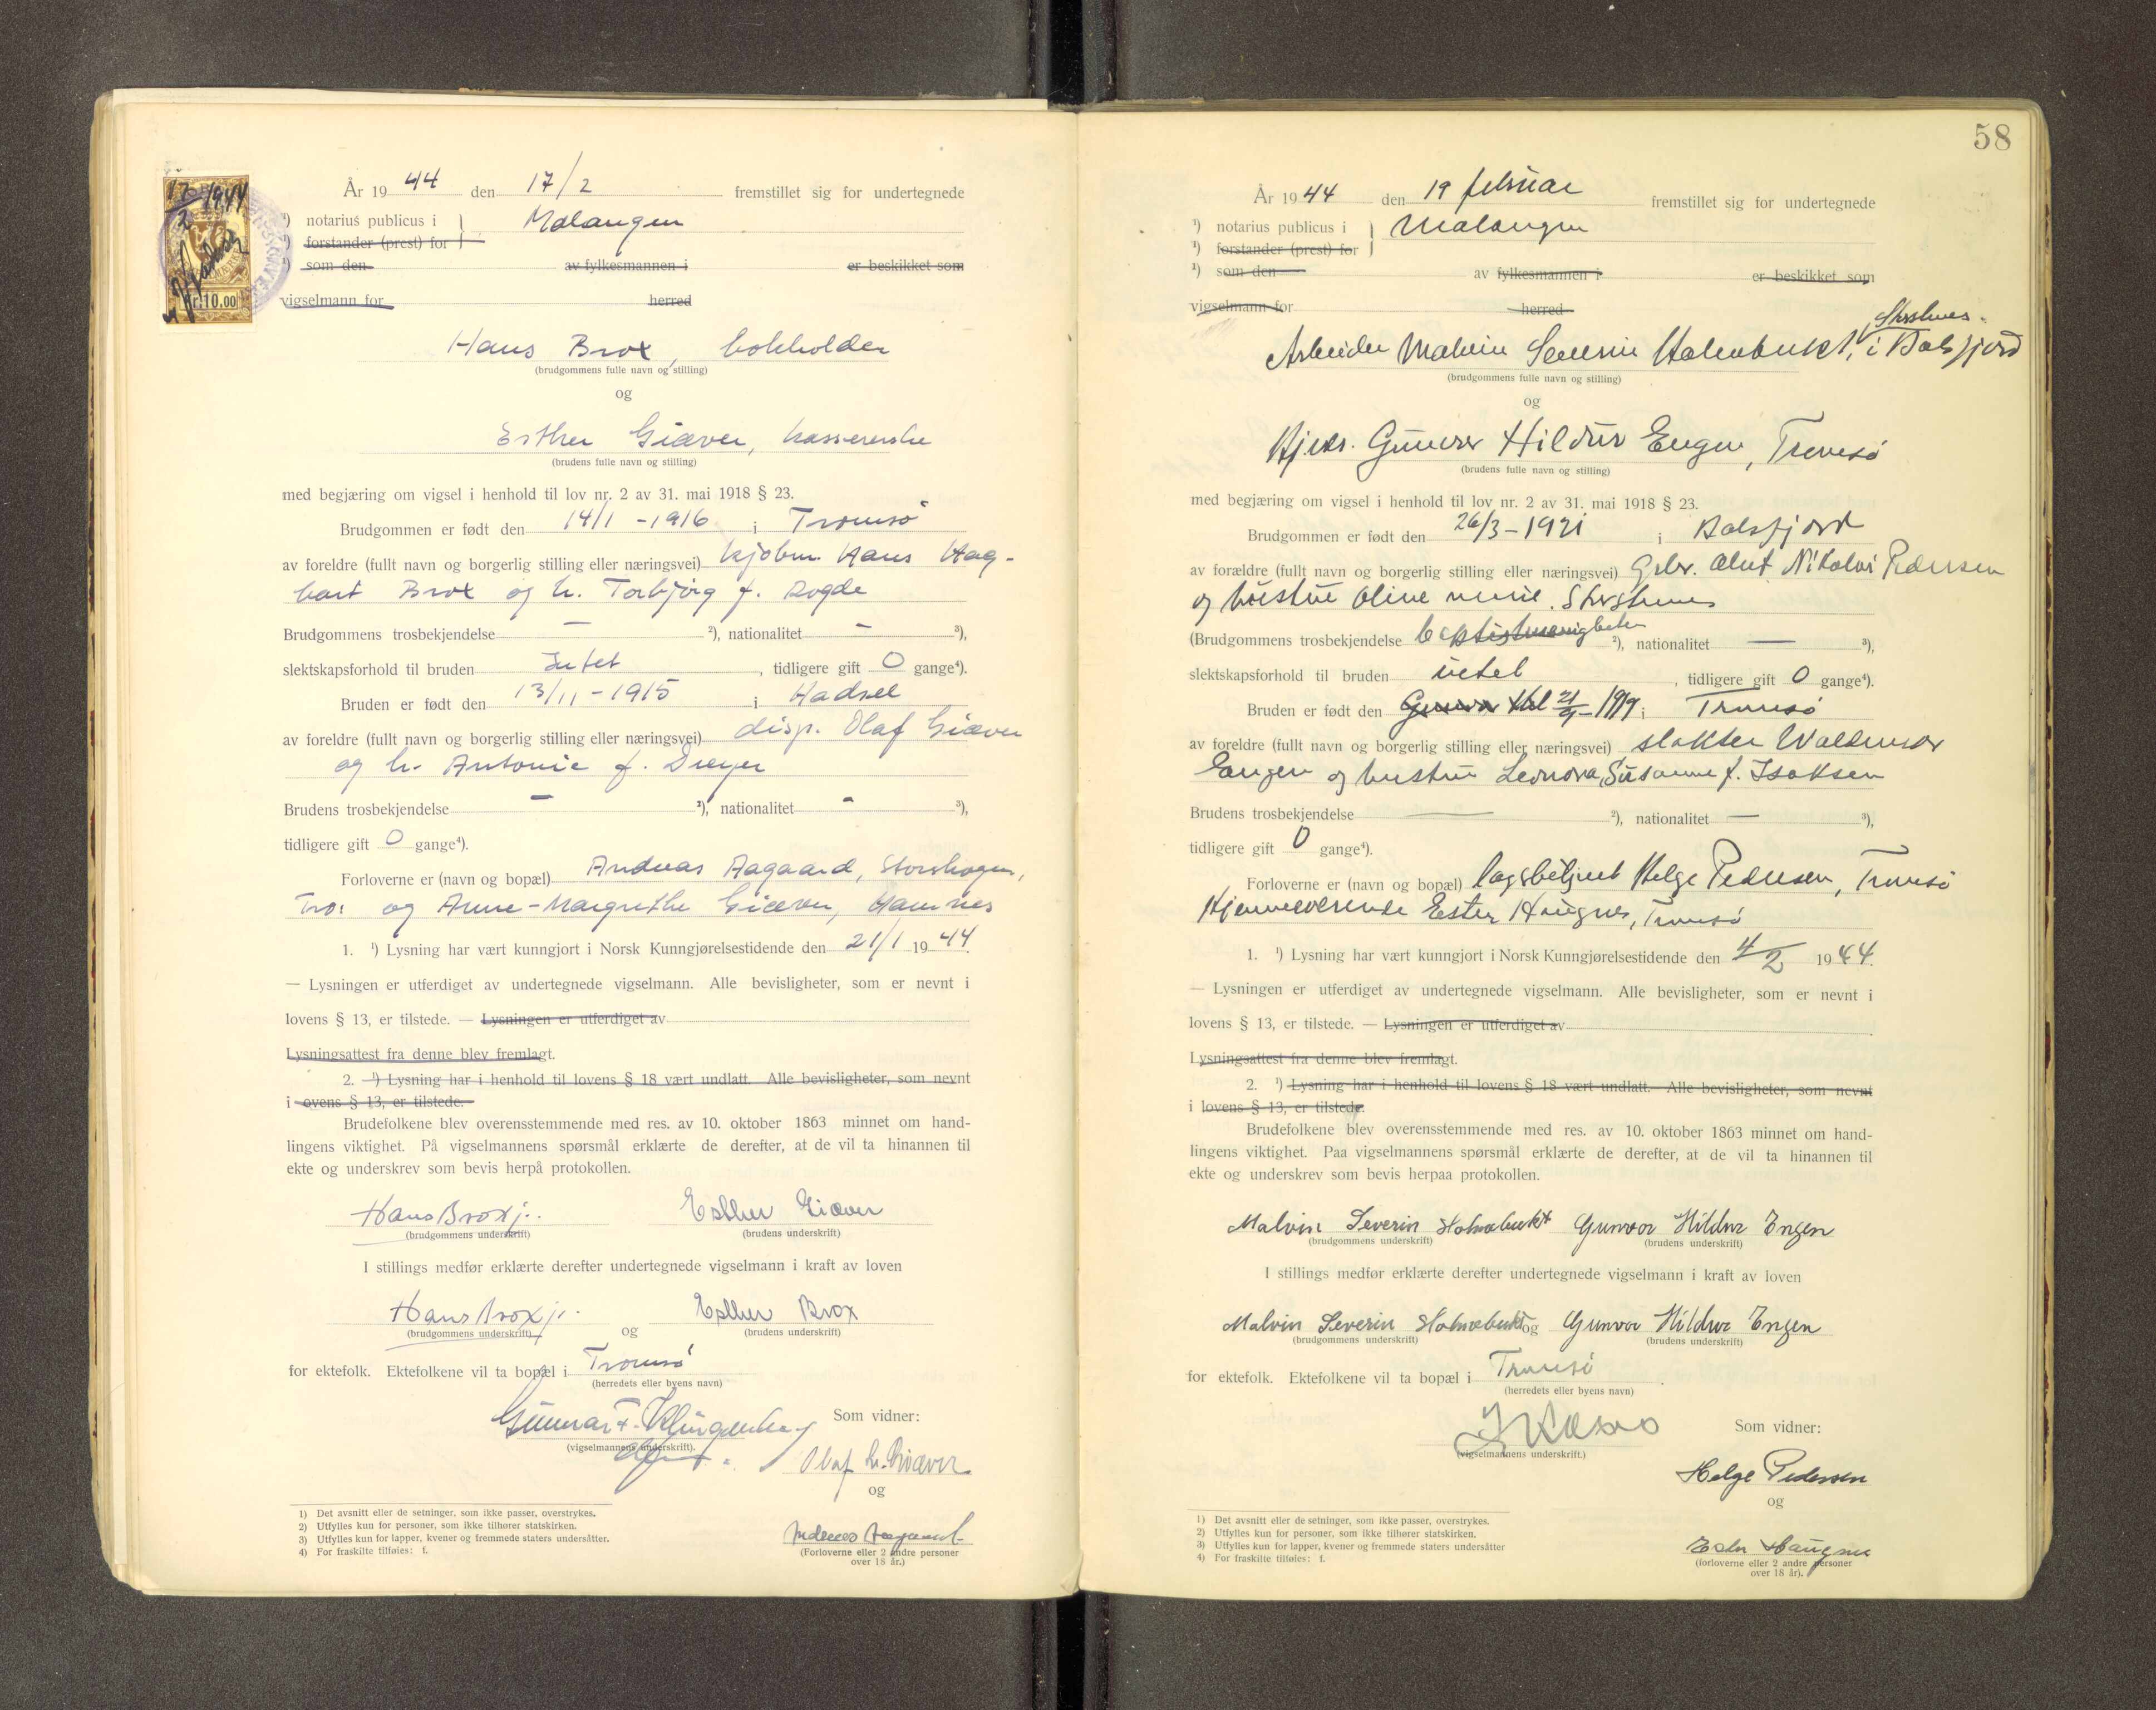 År 19 44 den 17/2 fremstillet sig for undertegnede
¹) notarius publicus i } Malangen
¹) forstander (prest) for
¹) som den av fylkesmannen i er beskikket som
vigselmann for herred
Kr. 10.00
Hans Brox, bokholder
(brudgommens fulle navn og stilling)
og
Esther Giæver, kassererske
(brudens fulle navn og stilling)
med begjæring om vigsel i henhold til lov nr. 2 av 31. mai 1918 § 23.
Brudgommen er født den 14/1 - 1916 i Tromsø
av foreldre (fullt navn og borgerlig stilling eller næringsvei) kjøbm. Hans Hag-
bart Brox og h. Torbjørg f. Rogde
Brudgommens trosbekjendelse — ²), nationalitet - ³),
slektskapsforhold til bruden Intet, tidligere gift 0 gange⁴).
Bruden er født den 13/11 - 1915 i Hadsel
av foreldre (fullt navn og borgerlig stilling eller næringsvei) disp. Olaf Giæver
og h. Antonie f. Dreyer
Brudens trosbekjendelse - ²), nationalitet - ³),
tidligere gift 0 gange⁴).
Forloverne er (navn og bopæl) Andreas Aagaard, Storskogen,
Tro. og Anne-Margrethe Giæver, Havnnes
1. ¹) Lysning har vært kunngjort i Norsk Kunngjørelsestidende den 21/1 19 44.
— Lysningen er utferdiget av undertegnede vigselmann. Alle bevisligheter, som er nevnt i
lovens § 13, er tilstede. — Lysningen er utferdiget av
Lysningsattest fra denne blev fremlagt.
2. ¹) Lysning har i henhold til lovens § 18 vært undlatt. Alle bevisligheter, som nevnt
i ovens § 13, er tilstede.
Brudefolkene blev overensstemmende med res. av 10. oktober 1863 minnet om hand-
lingens viktighet. På vigselmannens spørsmål erklærte de derefter, at de vil ta hinannen til
ekte og underskrev som bevis herpå protokollen.
Hans Brox j. Esther Giæver
(brudgommens underskrift) (brudens underskrift)
I stillings medfør erklærte derefter undertegnede vigselmann i kraft av loven
Hans Brox j. og Esther Brox
(brudgommens underskrift) (brudens underskrift)
for ektefolk. Ektefolkene vil ta bopæl i Tromsø
(herredets eller byens navn)
Gunnar F. Klingenberg Som vidner:
(vigselmannens underskrift).
Olaf Giæver
og
Andreas Aagaard
(Forloverne eller 2 andre personer
over 18 år.)
1) Det avsnitt eller de setninger, som ikke passer, overstrykes.
2) Utfylles kun for personer, som ikke tilhører statskirken.
3) Utfylles kun for lapper, kvener og fremmede staters undersåtter.
4) For fraskilte tilføies: f.
58
År 19 44 den 19 februar fremstillet sig for undertegnede
¹) notarius publicus i } Malangen
¹) forstander (prest) for
¹) som den av fylkesmannen i er beskikket som
vigselmann for herred
Storsteines
Arbeider Malvin Severin Holmbukt, i Balsfjord
(brudgommens fulle navn og stilling)
og
Hjvær. Gunvor Hildur Engen, Tromsø
(brudens fulle navn og stilling)
med begjæring om vigsel i henhold til lov nr. 2 av 31. mai 1918 § 23.
Brudgommen er født den 26/3 - 1921 i Balsfjord
av forældre (fullt navn og borgerlig stilling eller næringsvei) Gbr. Oluf Nikolai Pedersen
og hustru Oline Storsteines
(Brudgommens trosbekjendelse ²), nationalitet — ³),
slektskapsforhold til bruden intet, tidligere gift 0 gange⁴).
Bruden er født den 21/9 - 1919 i Tromsø
av foreldre (fullt navn og borgerlig stilling eller næringsvei) slakter Waldemar
Engen og hustru Leonora Susanne f. Isaksen
Brudens trosbekjendelse — ²), nationalitet — ³),
tidligere gift 0 gange⁴).
Forloverne er (navn og bopæl) Helge Pedersen, Tromsø
Hjemmeværende Ester Haugnes, Tromsø
1. ¹) Lysning har vært kunngjort i Norsk Kunngjørelsestidende den 4/2 19 44.
— Lysningen er utferdiget av undertegnede vigselmann. Alle bevisligheter, som er nevnt i
lovens § 13, er tilstede. — Lysningen er utferdiget av
Lysningsattest fra denne blev fremlagt.
2. ¹) Lysning har i henhold til lovens § 18 vært undlatt. Alle bevisligheter, som nevnt
i lovens § 13, er tilstede.
Brudefolkene blev overensstemmende med res. av 10. oktober 1863 minnet om hand-
lingens viktighet. Paa vigselmannens spørsmål erklærte de derefter, at de vil ta hinannen til
ekte og underskrev som bevis herpaa protokollen.
Malvin Severin Holmebukt Gunvor Hildur Engen
(brudgommens underskrift) (brudens underskrift)
I stillings medfør erklærte derefter undertegnede vigselmann i kraft av loven
Malvin Severin Holmebukt og Gunvor Hildur Engen
(brudgommens underskrift) (brudens underskrift)
for ektefolk. Ektefolkene vil ta bopæl i Tromsø
(herredets eller byens navn)
Som vidner:
(vigselmannens underskrift.)
Helge Pedersen
og
Ester Haugnes
(forloverne eller 2 andre personer
over 18 år).
1) Det avsnitt eller de setninger, som ikke passer, overstrykes.
2) Utfylles kun for personer, som ikke tilhører statskirken.
3) Utfylles kun for lapper, kvener og fremmede staters undersåtter
4) For fraskilte tilføies: f.